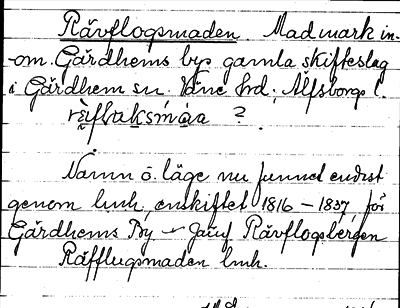 Rävflogsmaden Madmark in-
om Gärdhems bys gamla skifteslag
i Gärdhem sn Väne hrd; Älfsborgs l.
?
Namn o. läge nu funnet endast
genom lmh, enskiftet 1816 - 1837, för
Gärdhems By - Jämf Rävflogsbergen
Räfflugsmaden lmh.